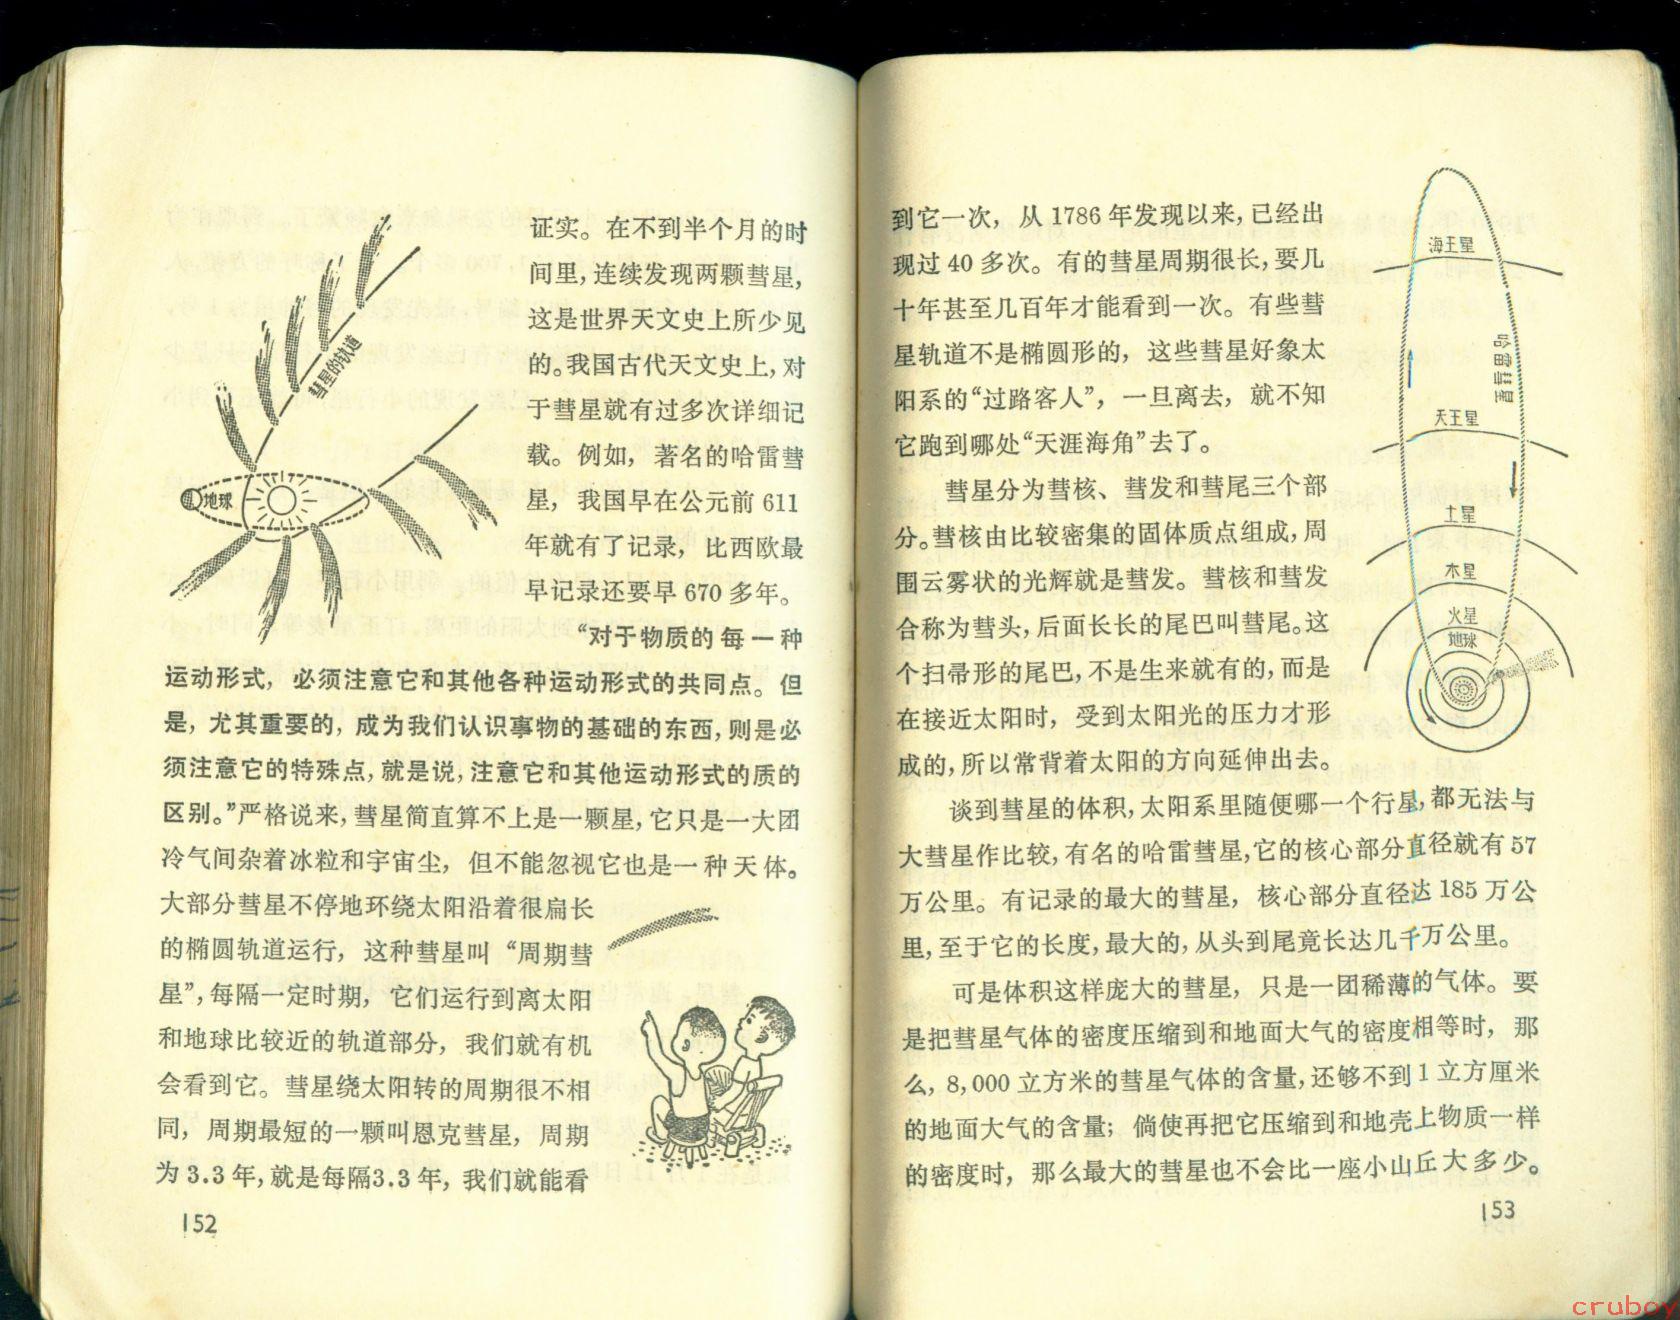 证实。在不到半个月的时
间里，连续发现两颗彗星，
这是世界天文史上所少见
的。我国古代天文史上，对
于彗星就有过多次详细记
载。例如，著名的哈雷彗
星，我国早在公元前 611
年就有了记录，比西欧最
早记录还要早 670 多年。
“对于物质的每一种
运动形式，必须注意它和其他各种运动形式的共同点。但
是，尤其重要的，成为我们认识事物的基础的东西，则是必
须注意它的特殊点，就是说，注意它和其他运动形式的质的
区别。”严格说来，彗星简直算不上是一颗星，它只是一大团
冷气间杂着冰粒和宇宙尘，但不能忽视它也是一种天体。
大部分彗星不停地环绕太阳沿着很扁长
的椭圆轨道运行，这种彗星叫“周期彗
星”，每隔一定时期，它们运行到离太阳
和地球比较近的轨道部分，我们就有机
会看到它。彗星绕太阳转的周期很不相
同，周期最短的一颗叫恩克彗星，周期
为 3.3 年，就是每隔3.3 年，我们就能看
彗星的轨道
地球
152
到它一次，从 1786 年发现以来，已经出
现过 40 多次。有的彗星周期很长，要几
十年甚至几百年才能看到一次。有些彗
星轨道不是椭圆形的，这些彗星好象太
阳系的“过路客人”，一旦离去，就不知
它跑到哪处“天涯海角”去了。
彗星分为彗核、彗发和彗尾三个部
分。彗核由比较密集的固体质点组成，周
围云雾状的光辉就是彗发。彗核和彗发
合称为彗头，后面长长的尾巴叫彗尾。这
个扫帚形的尾巴，不是生来就有的，而是
在接近太阳时，受到太阳光的压力才形
成的，所以常背着太阳的方向延伸出去。
谈到彗星的体积，太阳系里随便哪一个行星，都无法与
大彗星作比较，有名的哈雷彗星，它的核心部分直径就有 57
万公里。有记录的最大的彗星，核心部分直径达 185 万公
里，至于它的长度，最大的，从头到尾竟长达几千万公里。
可是体积这样庞大的彗星，只是一团稀薄的气体。要
是把彗星气体的密度压缩到和地面大气的密度相等时，那
么，8,000 立方米的彗星气体的含量，还够不到 1 立方厘米
的地面大气的含量；倘使再把它压缩到和地壳上物质一样
的密度时，那么最大的彗星也不会比一座小山丘大多少。
海王星
哈雷彗星
天王星
土星
木星
火星
地球
153
cruboy